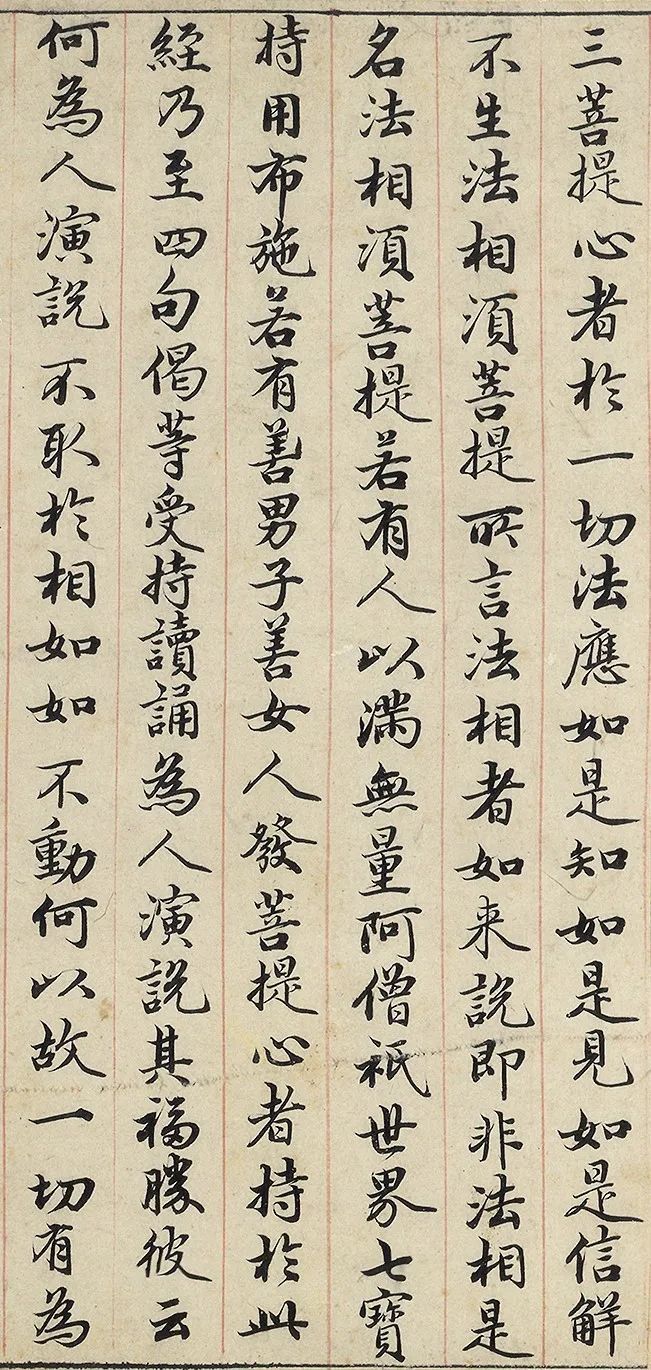 三菩提心者於一切法應如是知如是見如是信解
不生法相須菩提所言法相者如来說即非法相是
名法相須菩提若有人以滿無量阿僧祇世界七寶
持用布施若有善男子善女人發菩提心者持於此
經乃至四句偈等受持讀誦為人演說其福勝彼云
何為人演說不取於相如如不動何以故一切有為